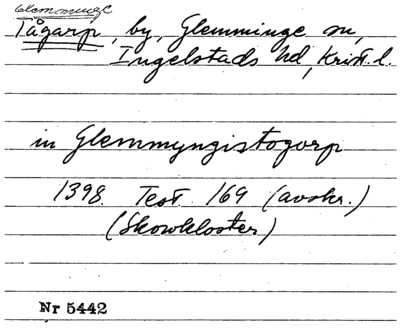 Glemminge
Tågarp, by, Glemminge sn,
Ingelstads hd, Krist. l.
in Glemmyngistogorp
1398 Test. 169 (avskr.)
(Skowkloster)
Nr 5442